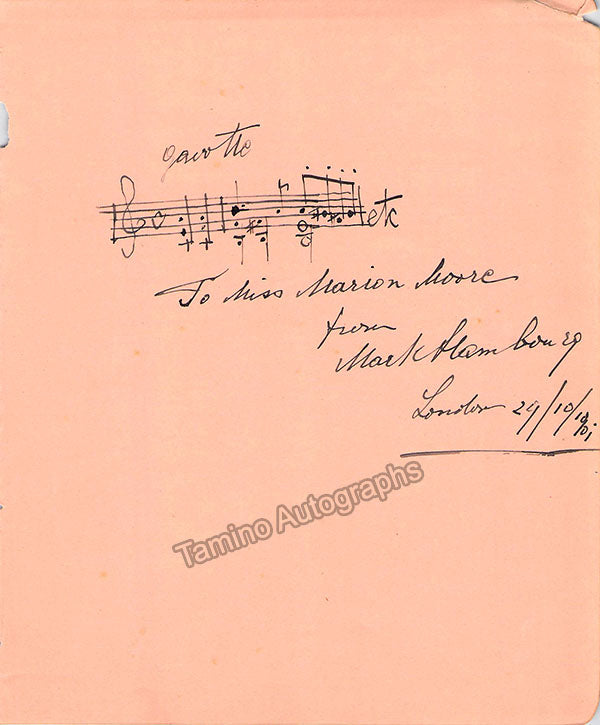 gavotte
etc
To Miss Marion Moore
from
Mark Hambourg
London
Tamino Autographs